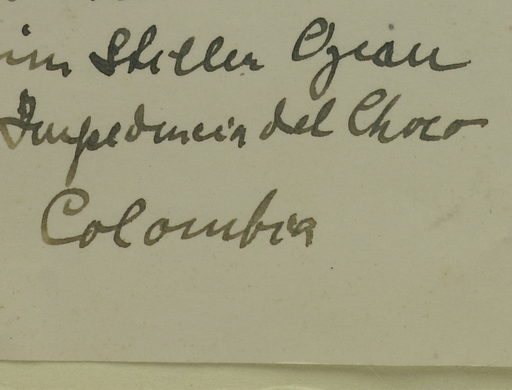 im Stillen Ozean
Impedincia del Choco
Colombia